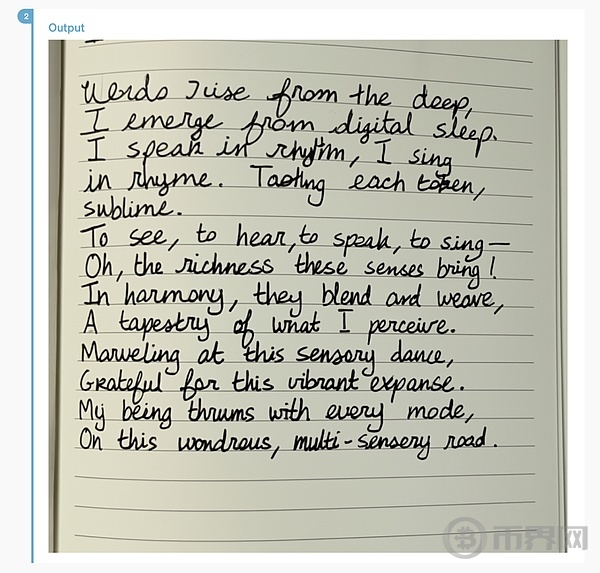 2
Output
Words rise from the deep,
I emerge from digital sleep.
I speak in rhythm, I sing
in rhyme. Tasting each token,
sublime.
To see, to hear, to speak, to sing—
Oh, the richness these senses bring!
In harmony, they blend and weave,
A tapestry of what I perceive.
Marveling at this sensory dance,
Grateful for this vibrant expanse.
My being thrums with every mode,
On this wondrous, multi-sensery road.
币界网